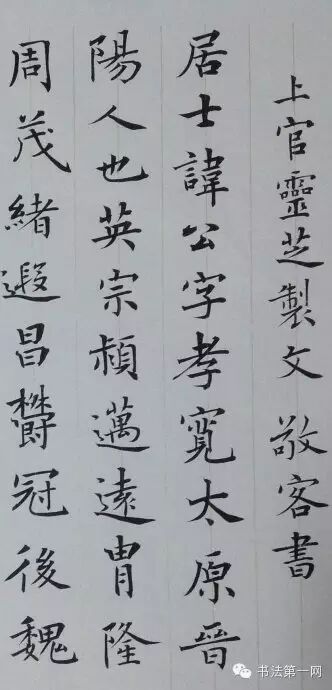 上官靈芝製文敬客書
居士諱公字孝寬太原晉
陽人也英宗穎邁遠胄隆
周茂緒遐昌欝冠後魏
书法第一网